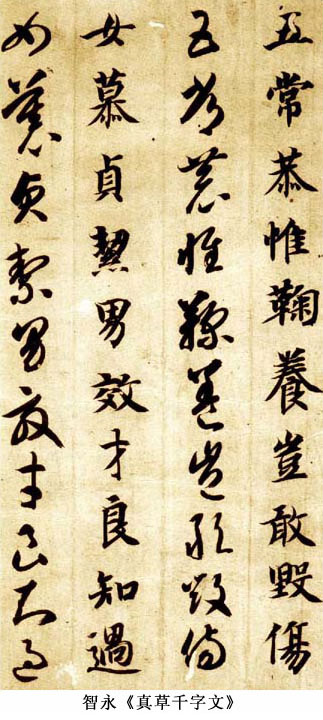 五常恭惟鞠養豈敢毀傷
五常恭惟鞠養豈敢毀傷
女慕貞絜男效才良知過
女慕貞絜男效才良知過
智永《真草千字文》